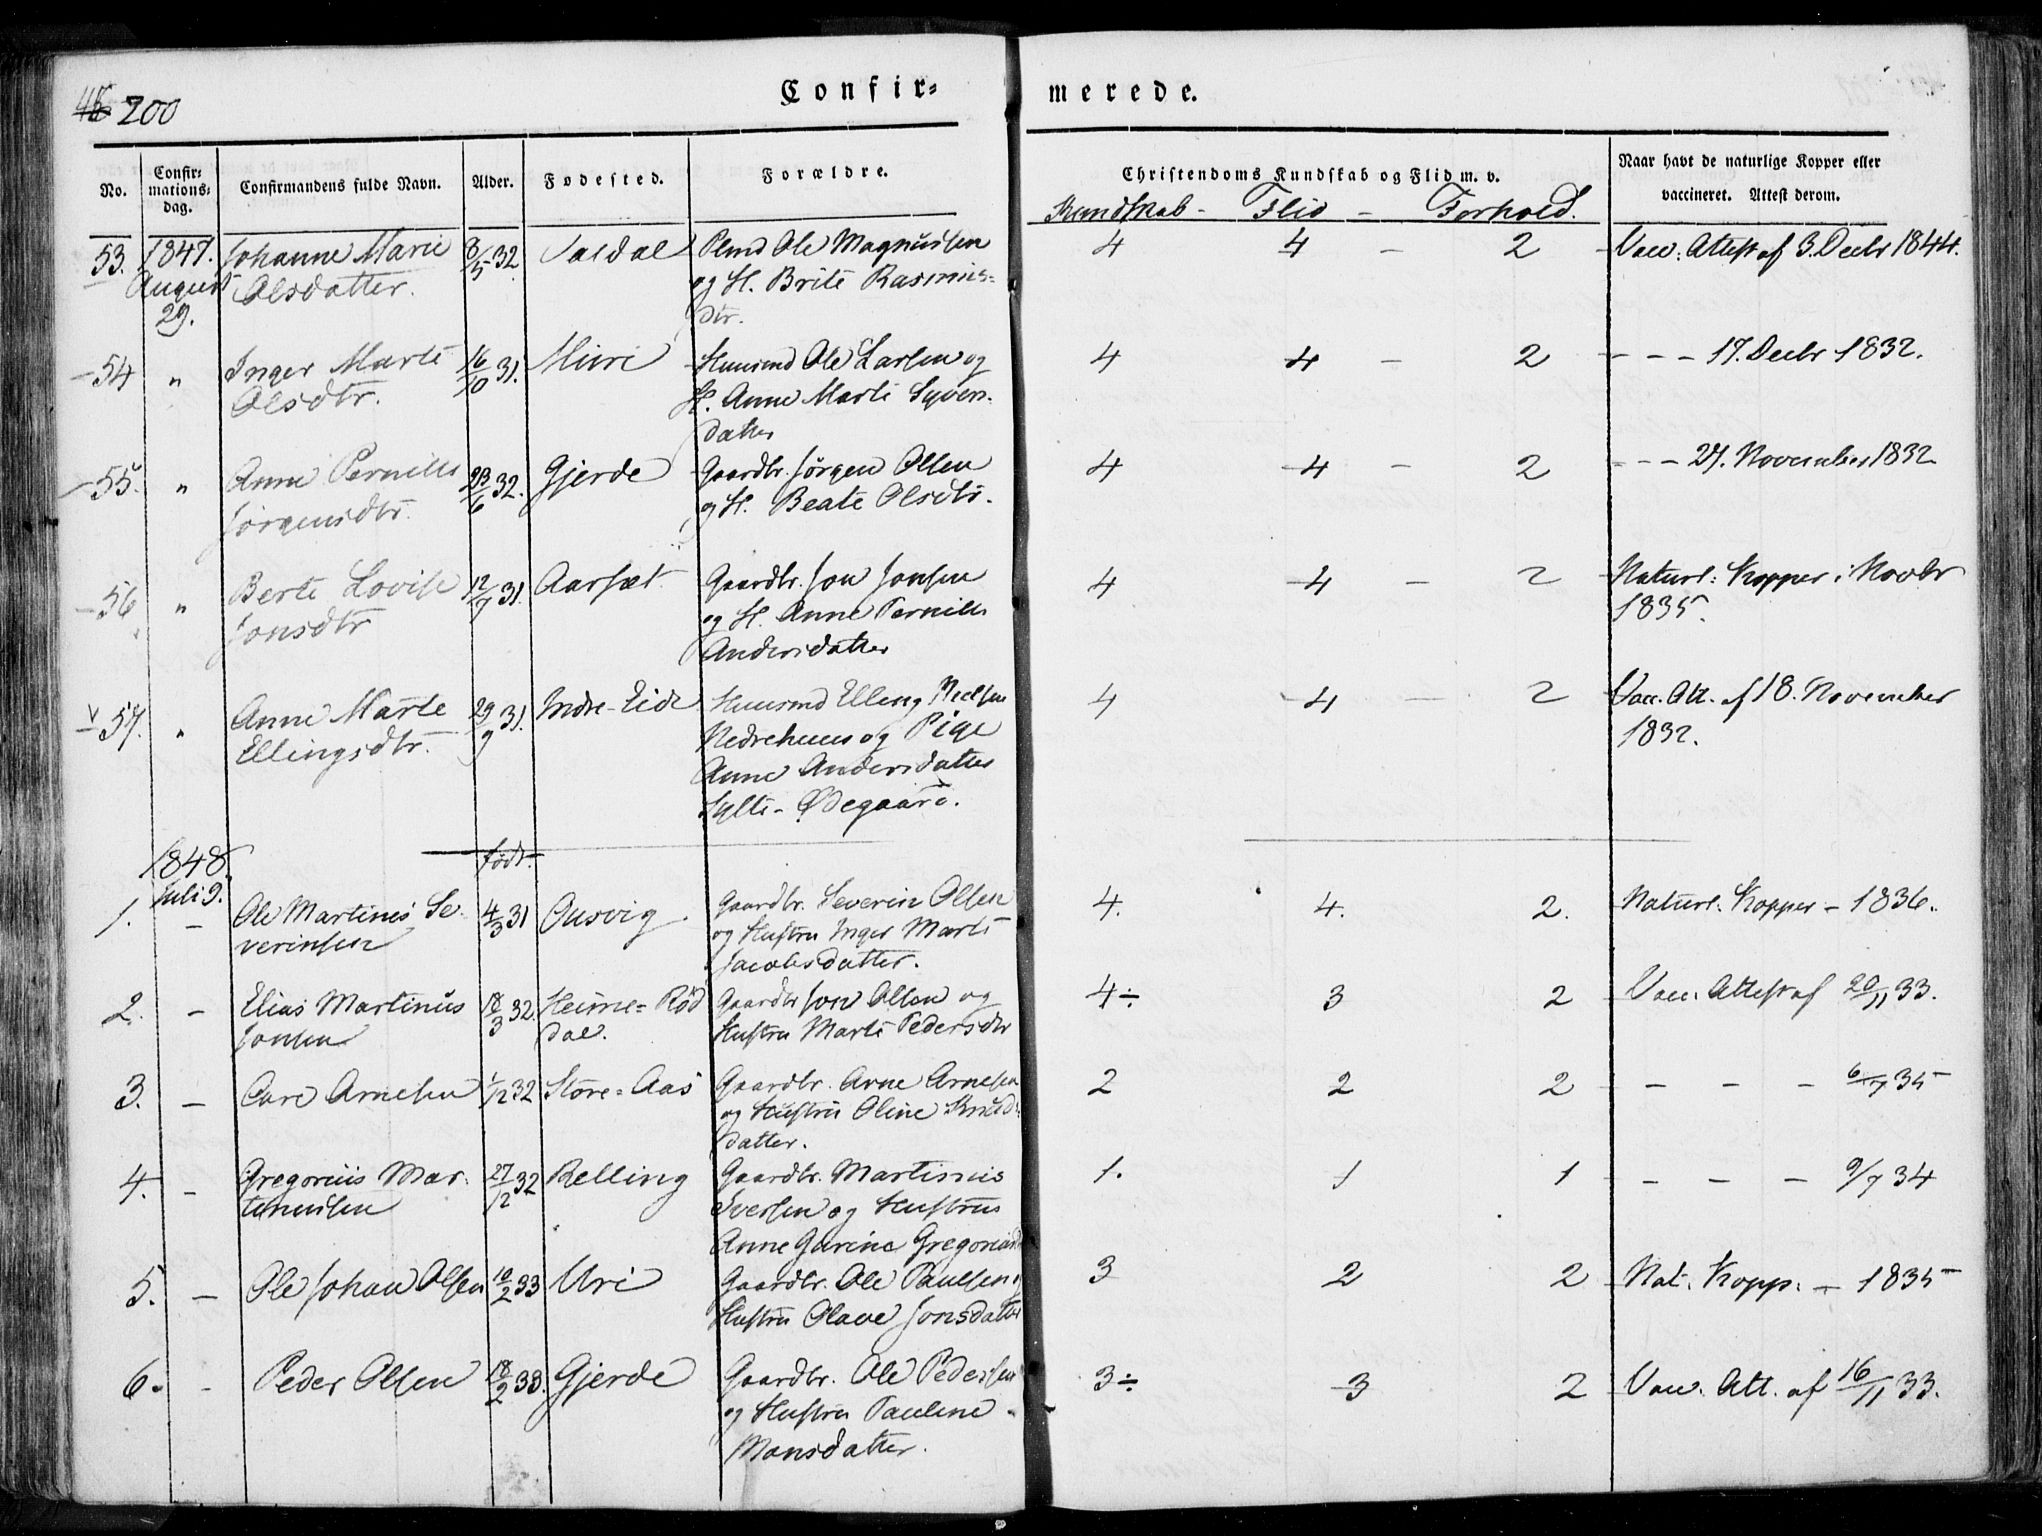 200
Confir= merede.
No.
Confir=
mations=
dag.
Confirmandens fulde Navn.
Alder.
Fødested.
Forældre.
Christendoms Kundskab og Flid m. v.
Kundskab - Flid - Forhold.
Naar havt de naturlige Kopper eller
vaccineret. Attest derom.
53. 1847. Johanne Marie 8/5 32 Ole Magnussen 4 4 - 2 Vacc. Attest af 3. Decbr 1844.
August Olsdatter. og H. Brite Rasmus=
29. dtr.
54 " Inger Marte 16/10 31. Muri Huusmd Ole Larsen og 4 4 - 2 - - - 17. Decbr 1832.
Olsdtr. H. Anne Marte Syvers=
datter
55. " Anne Pernille 23/6 32. Gjerde Gaardbr. Jørgen Olsen 4 4 - 2 - - - 27. November 1832
Jørgensdtr. og H. Beate Olsdtr.
56 " Berte Lovise 12/7 31. Aarset Gaardbr. Jon Jonsen 4 4 - 2 Naturl: Kopper i Novbr
Jonsdtr og H. Anne Pernille 1835.
Andersdatter
57. " Anne Marte 29/9 31. Indre-Eide Huusmd Elling Nielsen 4 4 - 2 Vacc. Att. af 18. November
Ellingsdtr. Nedrehuus og Pige 1832.
Anne Andersdatter
Sylte-Ødegaard.
1848. født.
Juli 9.
1. - Ole Martinus Se= 4/3 31 Ousvig Gaardbr. Severin Olsen 4. 4. 2. Naturl. Kopper - 1836.
verinsen og Hustru Inger Marte
Jacobsdatter.
2. - Elias Martinus 18/3 32. Heime=Rød Gaardbr Jon Olsen og 4÷ 3 2 Vacc. Attest af 20/11 33.
Jonsen dal. Hustru Marte Pedersdtr
3. - Care Arnesen 1/12 32 Store=Aas Gaardbr. Arne Arnesen 2 2 2 - - - 6/7 35
og Hustru Oline Knuds=
datter.
4. - Gregorius Mar= 27/12 32 Relling Gaardbr. Martinus 1. 1 1 - - - 9/7 34
tinussen Iversen og Hustru
Anne Gurine Gregoriusd
5. - Ole Johan Olsen 10/2 33 Uri Gaardbr. Ole Paulsen og 3 2 2 Nat. Kopp. - 1835
Hustru Olave Jonsdatter
6. - Peder Olsen 18/2 33. Gjerde Gaardbr. Ole Pedersen 3÷ 3 2 Vacc. Att. af 16/11 33.
og Hustru Pauline
Monsdatter.